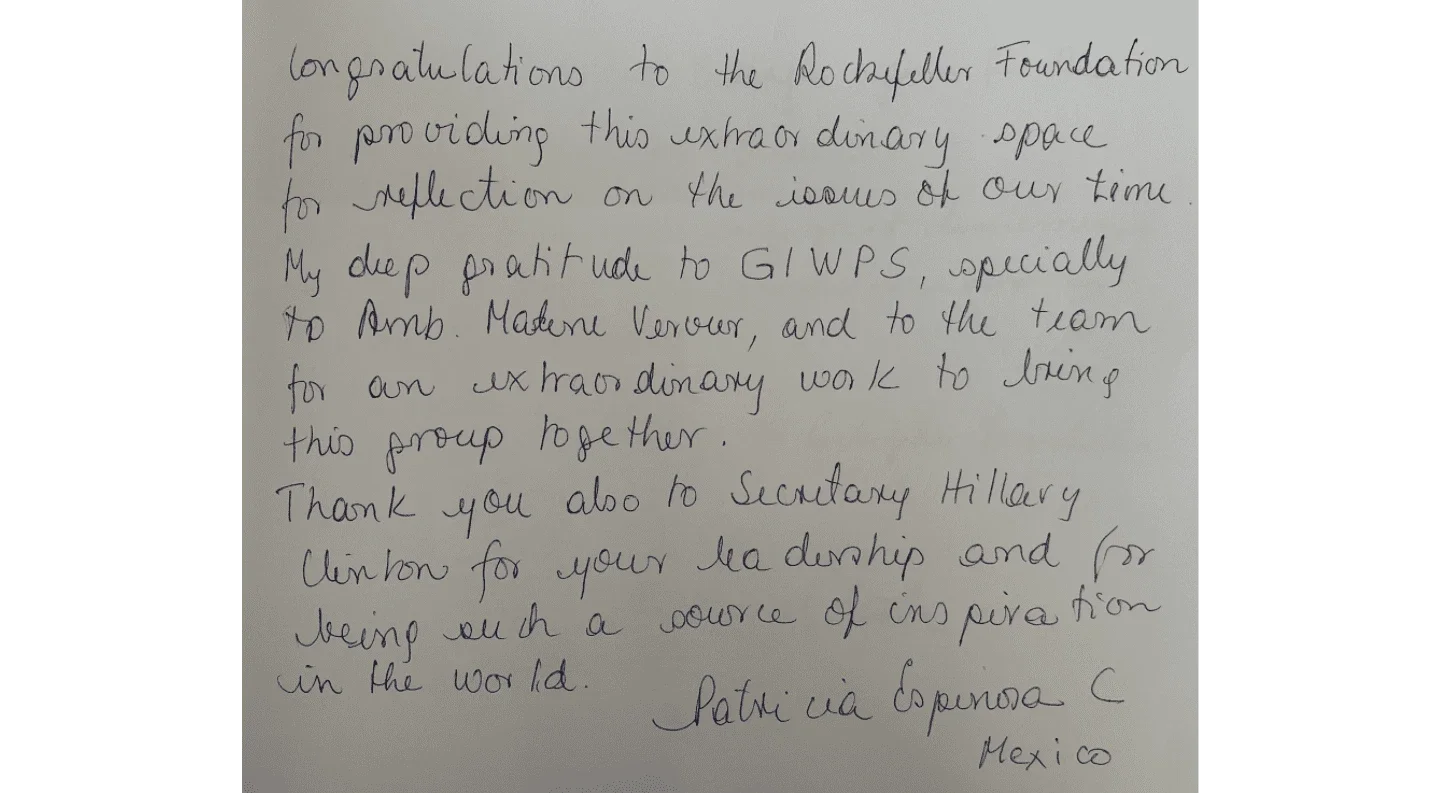 Congratulations to the Rockefeller Foundation
for providing this extraordinary space
for reflection on the issues of our time.
My deep gratitude to GIWPS, specially
to Amb. Melanne Verveer, and to the team
for an extraordinary work to bring
this group together.
Thank you also to Secretary Hillary
Clinton for your leadership and for
being such a source of inspiration
in the world.
Patricia Espinosa C
Mexico